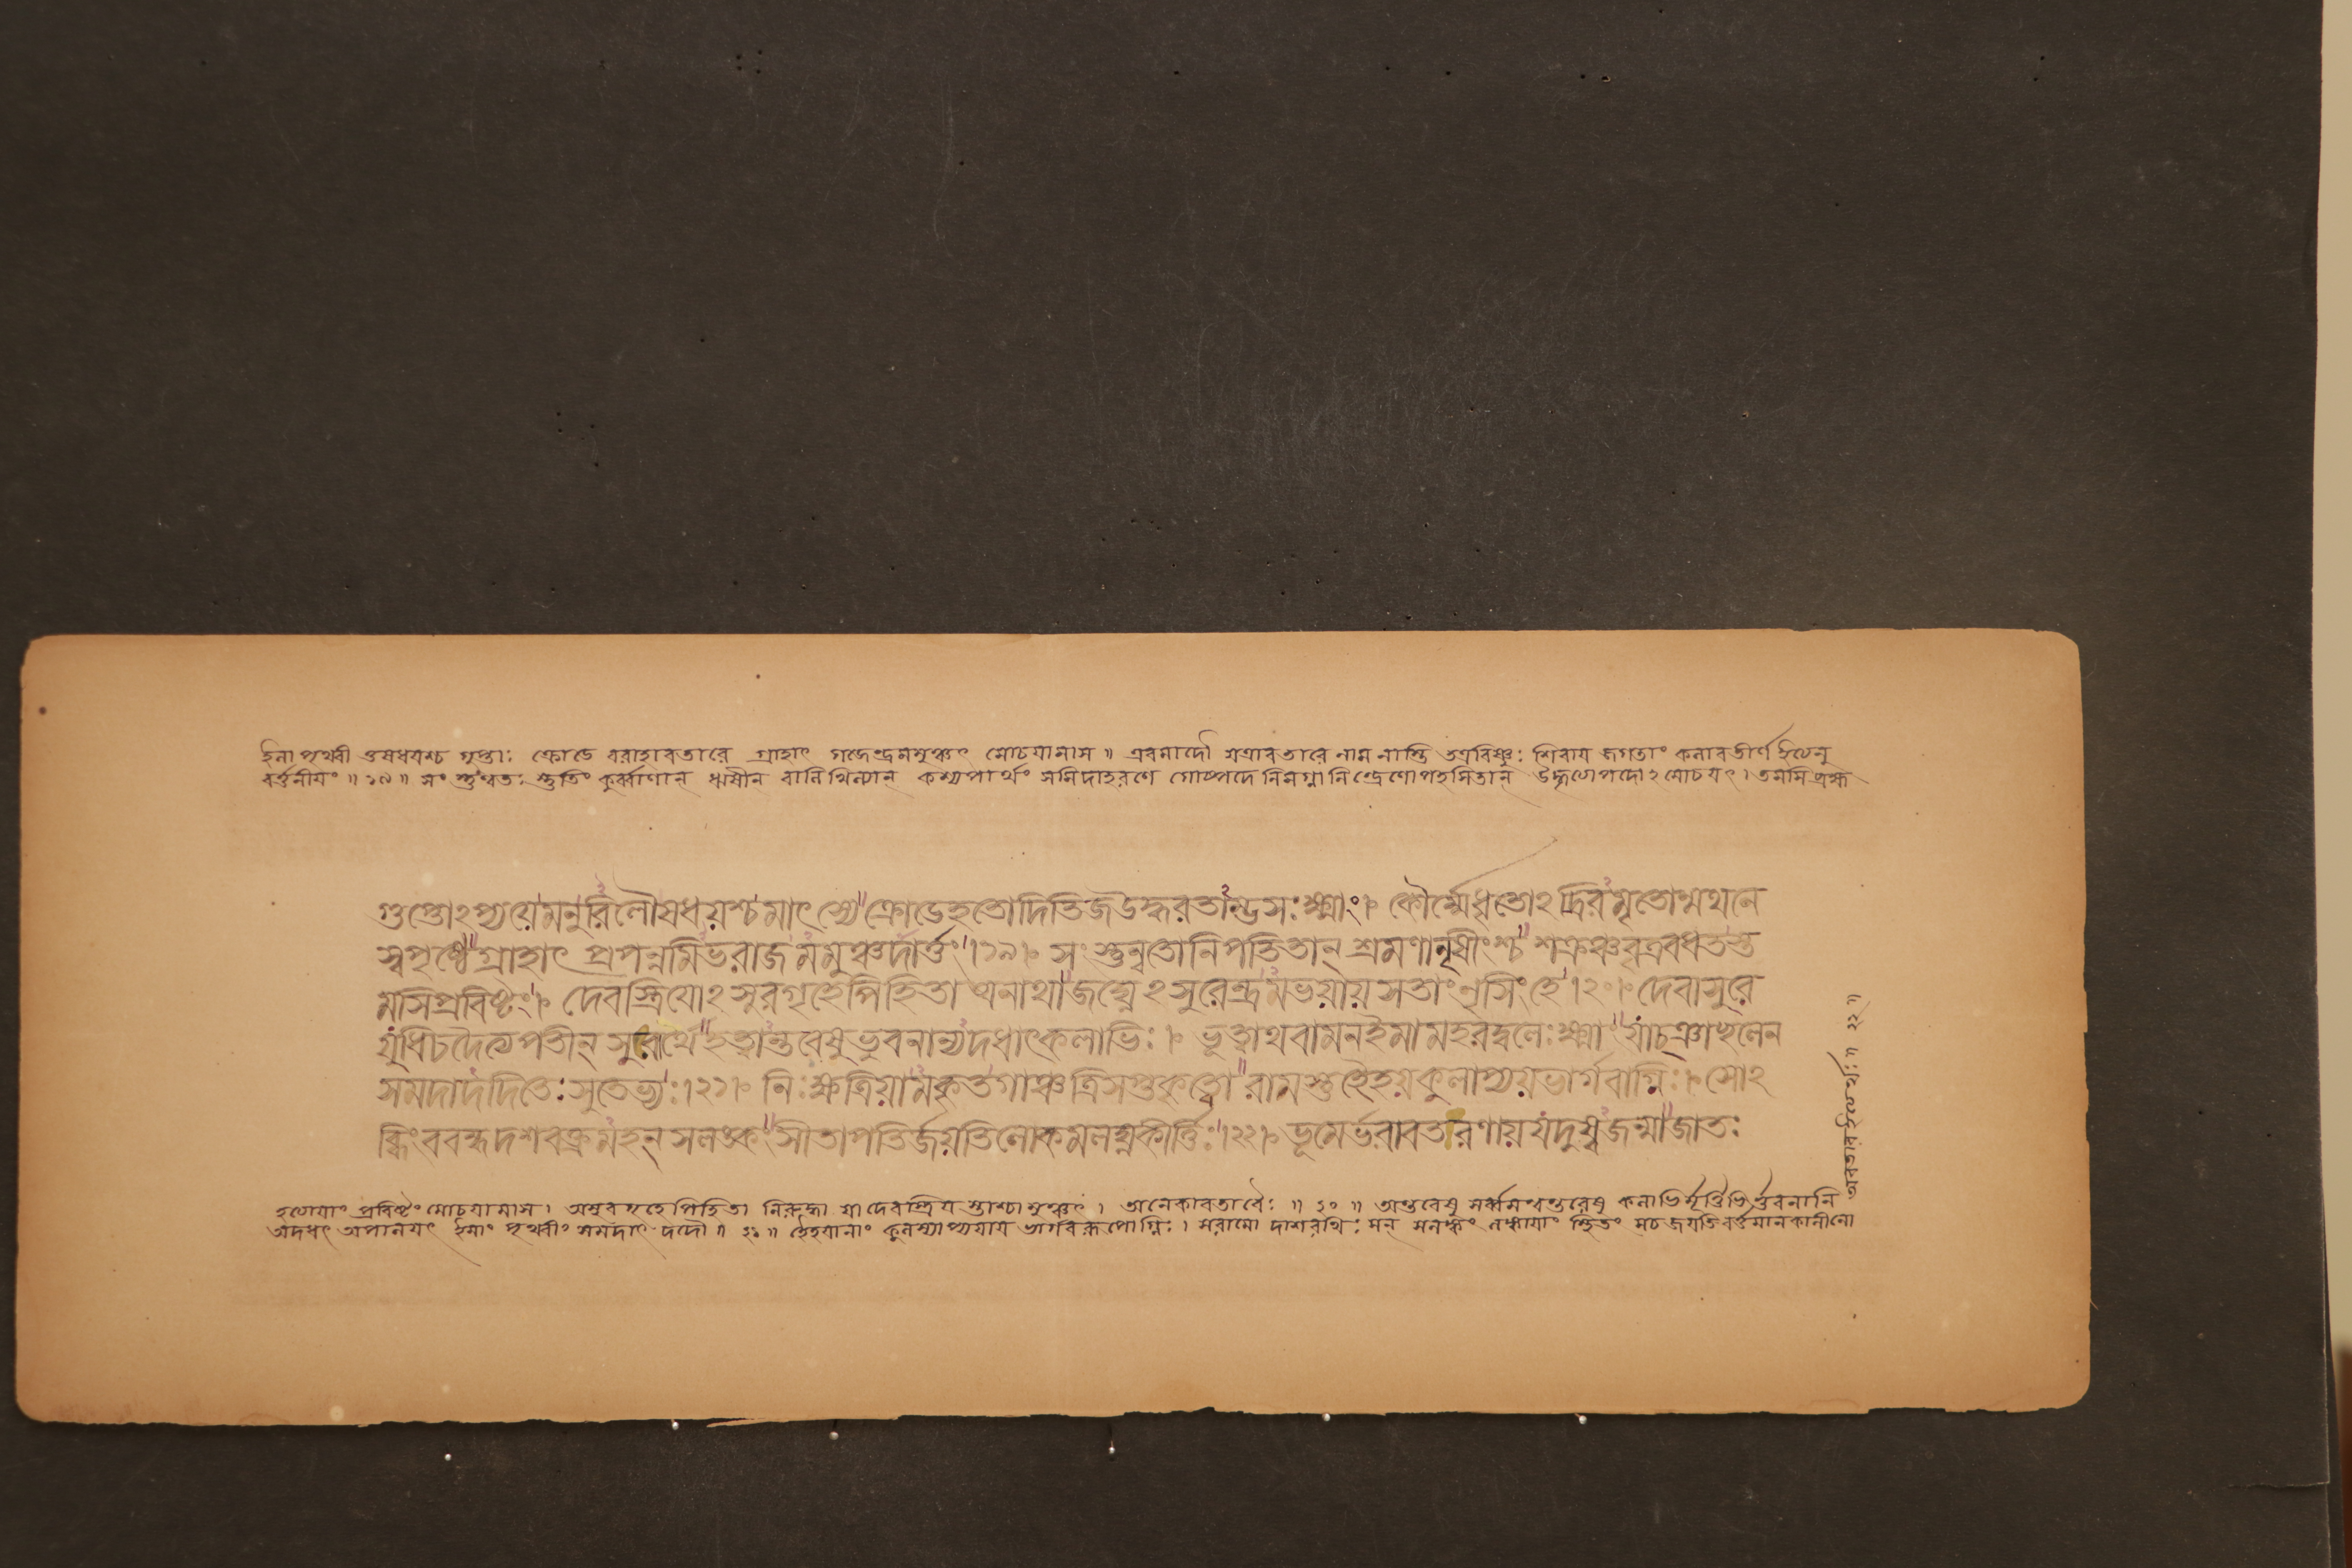 ইলা পৃথ্বী ওষধবশ্চ গুপ্তাঃ ক্রোডে বরাহাবতারে গ্রাহাৎ গজেন্দ্রমমুঞ্চৎ মোচযামাস ॥ এবমাদৌ যত্রাবতারে নাম নাস্তি তত্রবিষ্ণুঃ শিবায জগতাং কলাবতীর্ণ ইত্যেনু
বর্ত্তনীযং ॥ ১৯ ॥ সংস্তুন্বতঃ স্তুতিং কুর্ব্বাণান্ ঋষীন্ বালিখিল্যান্ কশ্যপার্থং সমিদাহরণে গোষ্পদে নিমগ্নানিন্দ্রেণোপহসিতান্ উদ্ধৃত্যেপদোঽমোচযৎ। তমসি ব্রহ্ম
গুপ্তোঽপ্যয়েমনুরিলৌষধয়শ্চমাৎস্যে ক্রোডেহতোদিতিজউদ্ধরতাম্ভসঃক্ষ্মাং। কৌর্ম্মেধৃতোঽদ্রিরমৃতোন্মথনে
স্বপৃষ্ঠে গ্রাহাৎ প্রপন্নমিভরাজমমুঞ্চদার্ত্তং।১৯। সংস্তুন্বতোনিপতিতান্ শ্রমণানৃষীংশ্চ শক্রঞ্চবৃত্রবধতস্ত
মসিপ্রবিষ্টং। দেবস্ত্রিযোঽসুরগৃহেপিহিতা অনাথাজঘ্নেঽসুরেন্দ্রমভয়ায়সতাংনৃসিংহে।২০। দেবাসুরে
যুধিচদৈত্যপতীন্ সুরার্থেহত্বান্তরেষুভুবনান্যদধাৎকলাভিঃ। ভূত্বাথবামনইমামহরদ্বলেঃক্ষ্মাং যাচ্ঞাচ্ছলেন
সমদাদদিতেঃসুতেভ্যঃ।২১। নিঃক্ষত্রিয়ামকৃতগাঞ্চত্রিসপ্তকৃত্বো রামস্তুহৈহয়কুলাপ্যয়ভার্গবাগ্নিঃ। সোঽ
ব্ধিংববন্ধদশবক্ত্রমহন্ সলঙ্কং সীতাপতির্জয়তিলোকমলঘ্নকীর্ত্তিঃ।২২। ভূমের্ভরাবতরণায়যদুষ্বজন্মা জাতঃ
হত্যেযাং প্রবিষ্টং মোচযামাস। অসুরগৃহে পিহিতা নিরুদ্ধা যা দেবস্ত্রিয স্তাশ্চামুঞ্চৎ। অনেকাবতারৈঃ ॥ ২০ ॥ অন্তরেষু সর্ব্বমন্বন্তরেষু কলাভির্মূর্ত্তিভির্ভুবনানি
অদধৎ অপালযৎ ইমাং পৃথ্বীং সমদাৎ দদৌ ॥ ২১ ॥ হৈহযানাং কুলস্যাপ্যযায ভার্গবরূপোগ্নিঃ। সরামো দাশরথিঃ সন্ সলঙ্কং লঙ্কাযাং স্থিতং সচ জযতি বর্ত্তমানকালীনো